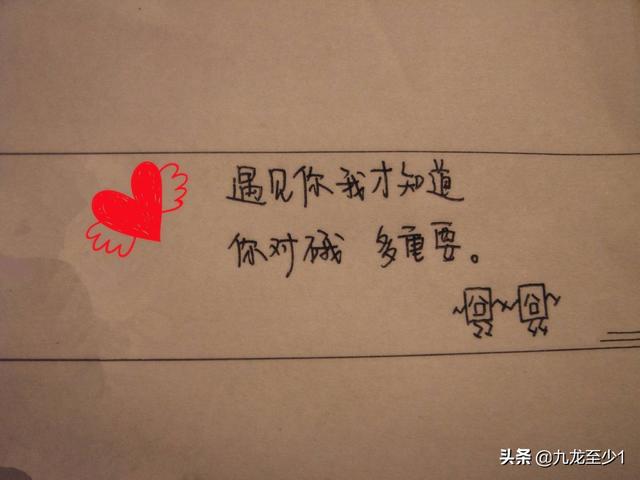 遇见你我才知道
你对硪 多重要。
囧囧
头条 @九龙至少1